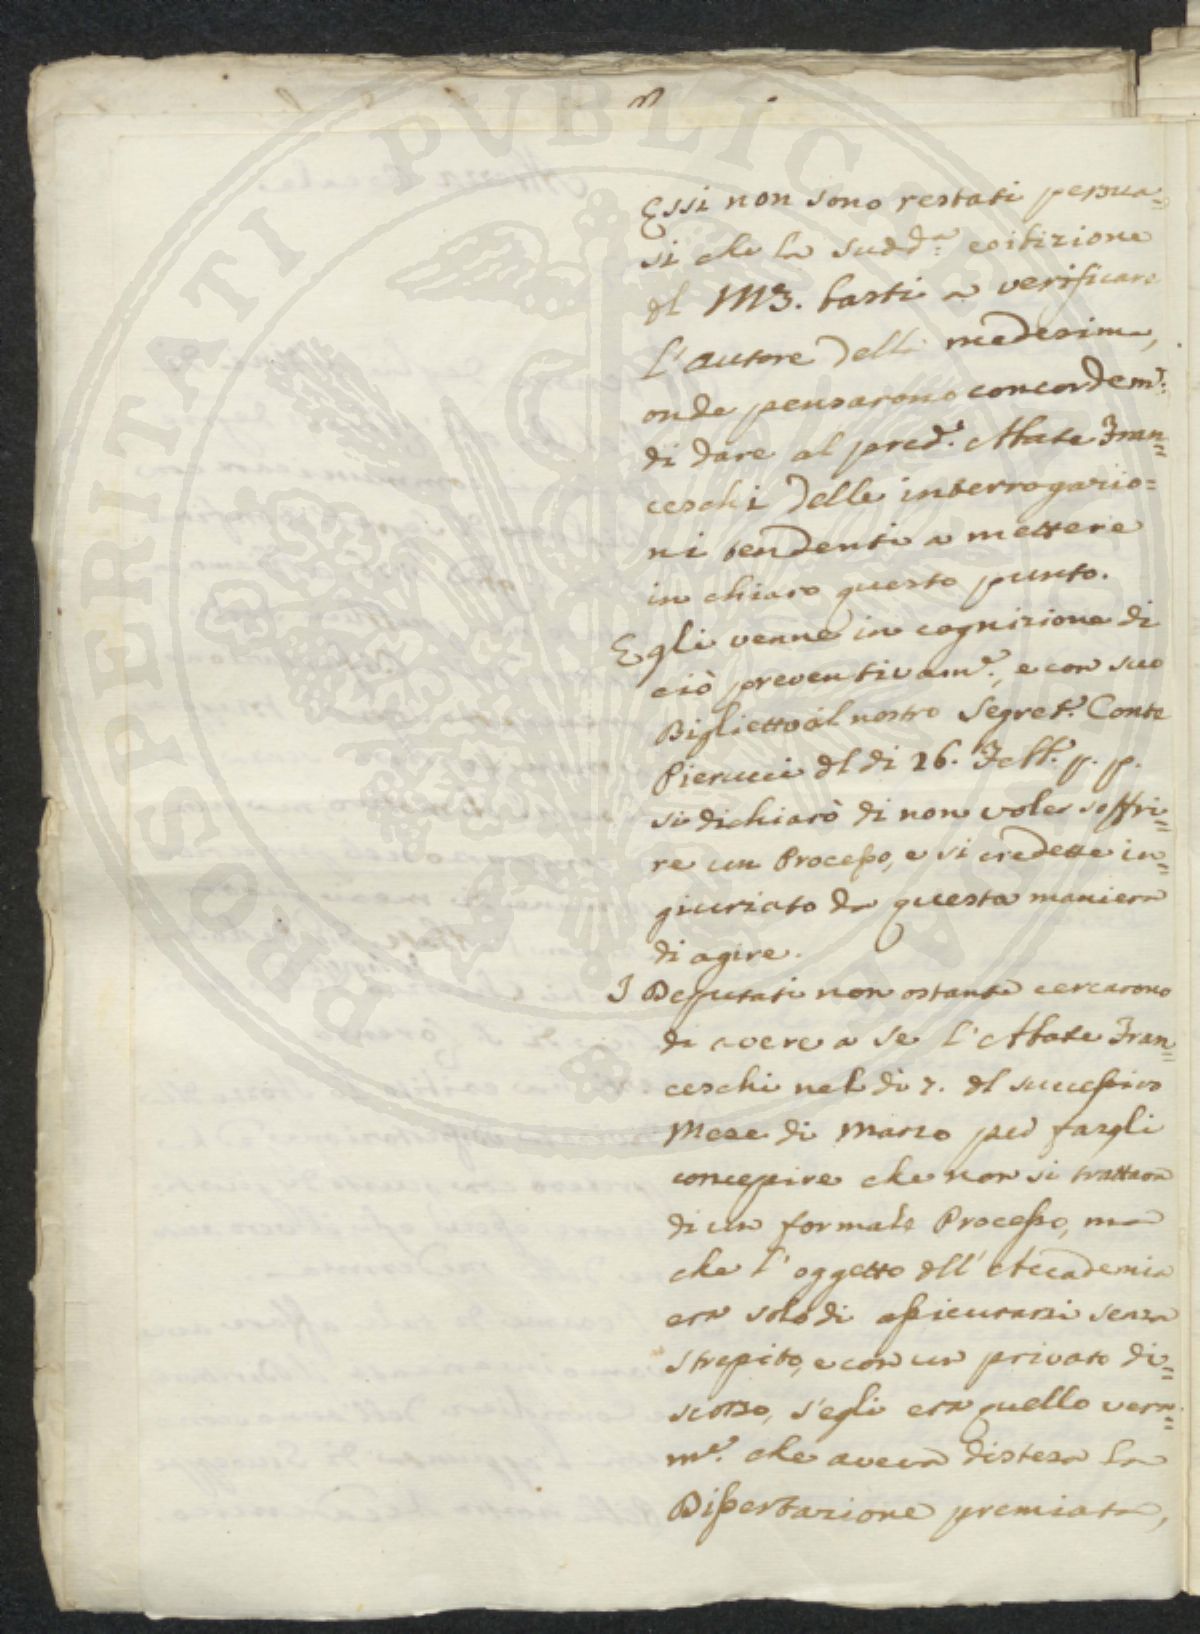 PROSPERITATI PUBLICAE AUGENDAE
Essi non sono restati persua=
si che la sudd.ª esibizione
del MS. basti a verificare
l'autore della medesima,
onde pensarono concordem.e
di dare al pred.º Abate Fran=
ceschi delle interrogazio=
ni tendenti a mettere
in chiaro questo punto.
Egli venne in cognizione di
ciò preventivam.e, e con suo
Biglietto al nostro Segret.º Conte
Pierucci del di 26. Febb.º p. p.
si dichiarò di non voler soffri=
re un Processo, e si credette in=
giuriato da questa maniera
di agire.
I Deputati non ostante cercarono
di avere a se l'Abate Fran=
ceschi nel di 7. del successivo
Mese di Marzo per fargli
concepire che non si trattava
di un formale Processo, ma
che l'oggetto dell'Accademia
era solo di assicurarsi senza
strepito, e con un privato di=
scorso, s'egli era quello vera=
m.e che aveva distesa la
Dissertazione premiata,